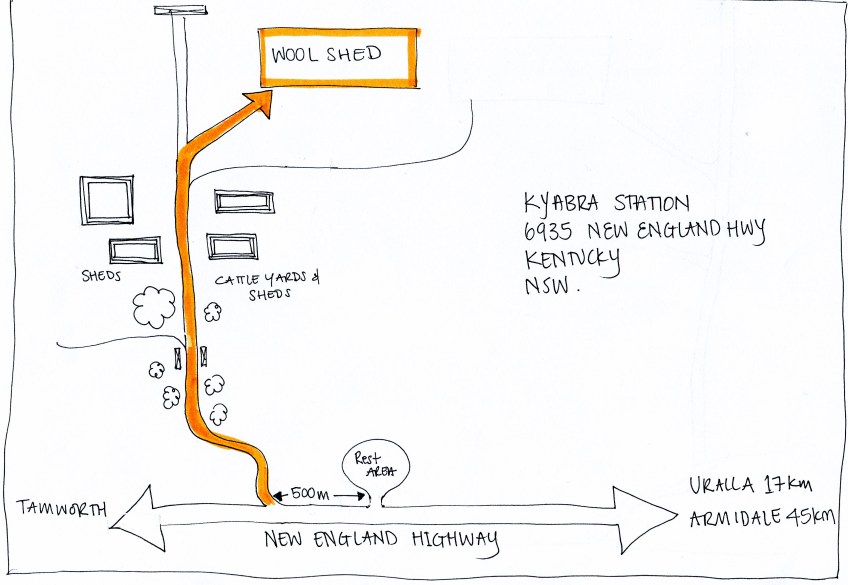 WOOL SHED
KYABRA STATION
6935 NEW ENGLAND HWY
KENTUCKY
NSW.
SHEDS
CATTLE YARDS &
SHEDS
Rest
AREA
500m
TAMWORTH
URALLA 17km
ARMIDALE 45km
NEW ENGLAND HIGHWAY